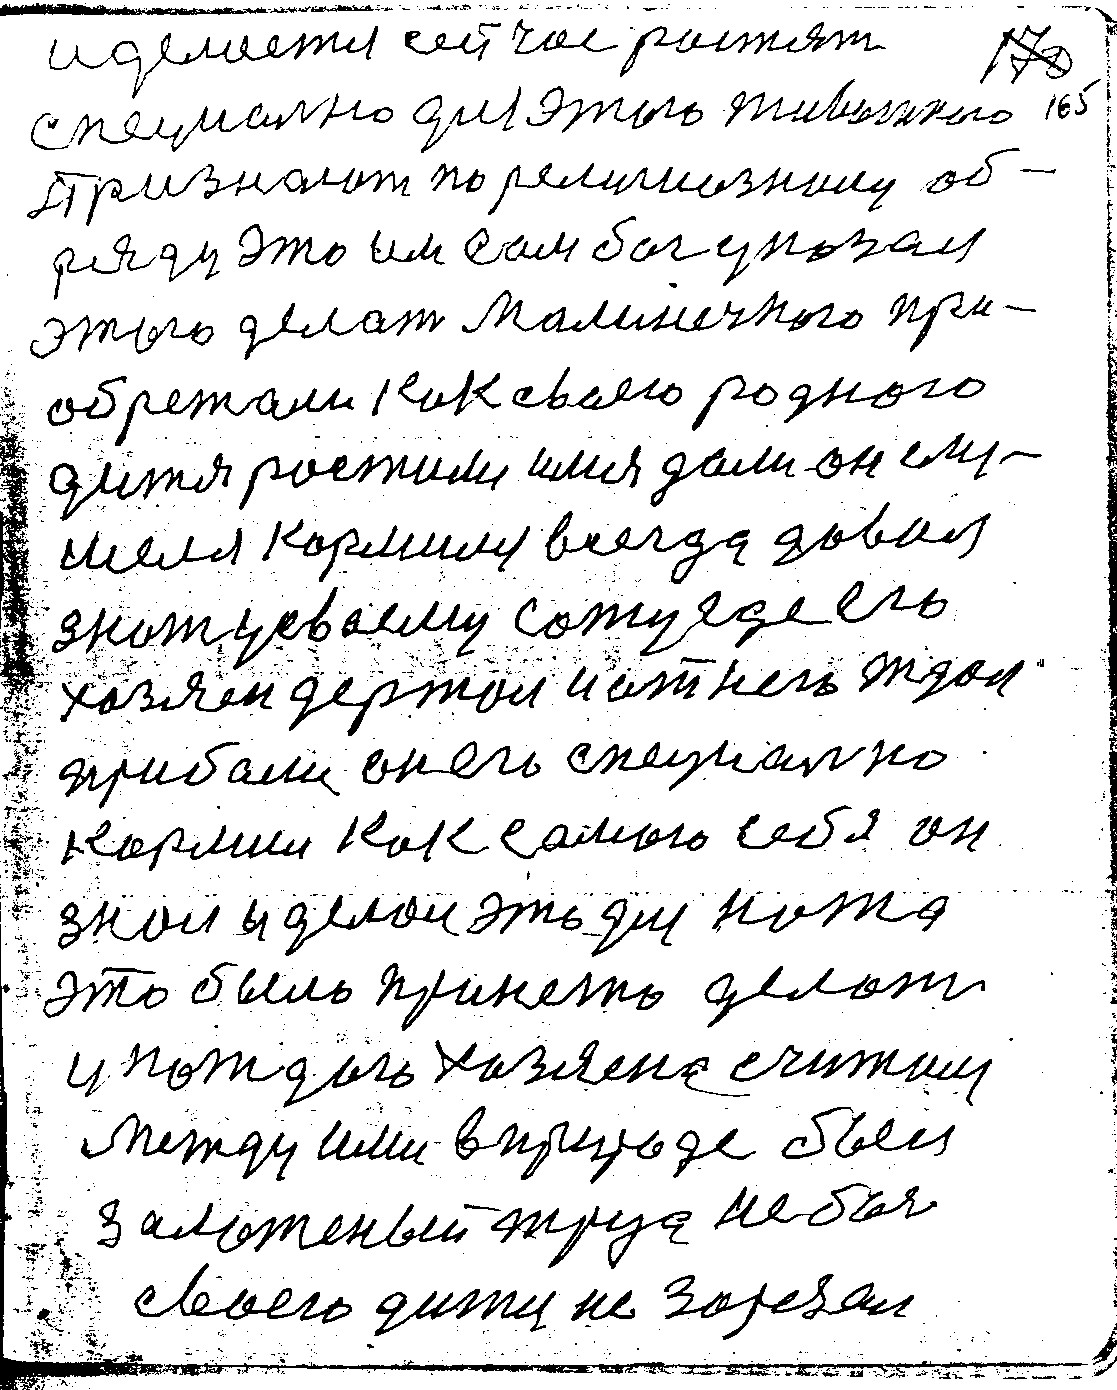 и делается сейчас ростят
170
специално для этого животного 165
признают по религиозному об-
ряду это им сам бог указал
этого делат Маленечкого при-
обретали как своего родного
дитя ростили имя дали он ему-
мелл кормили всегда давал
знат усвоему сотуяде его
хозяен держал и от него ждал
прибали он его специално
кормил как самого себя он
знал и делал это для ножа
это было принето делат
у каждого хозяена считали
между ими в природе был
заложеный труд не бог
своего дитя не зарезал